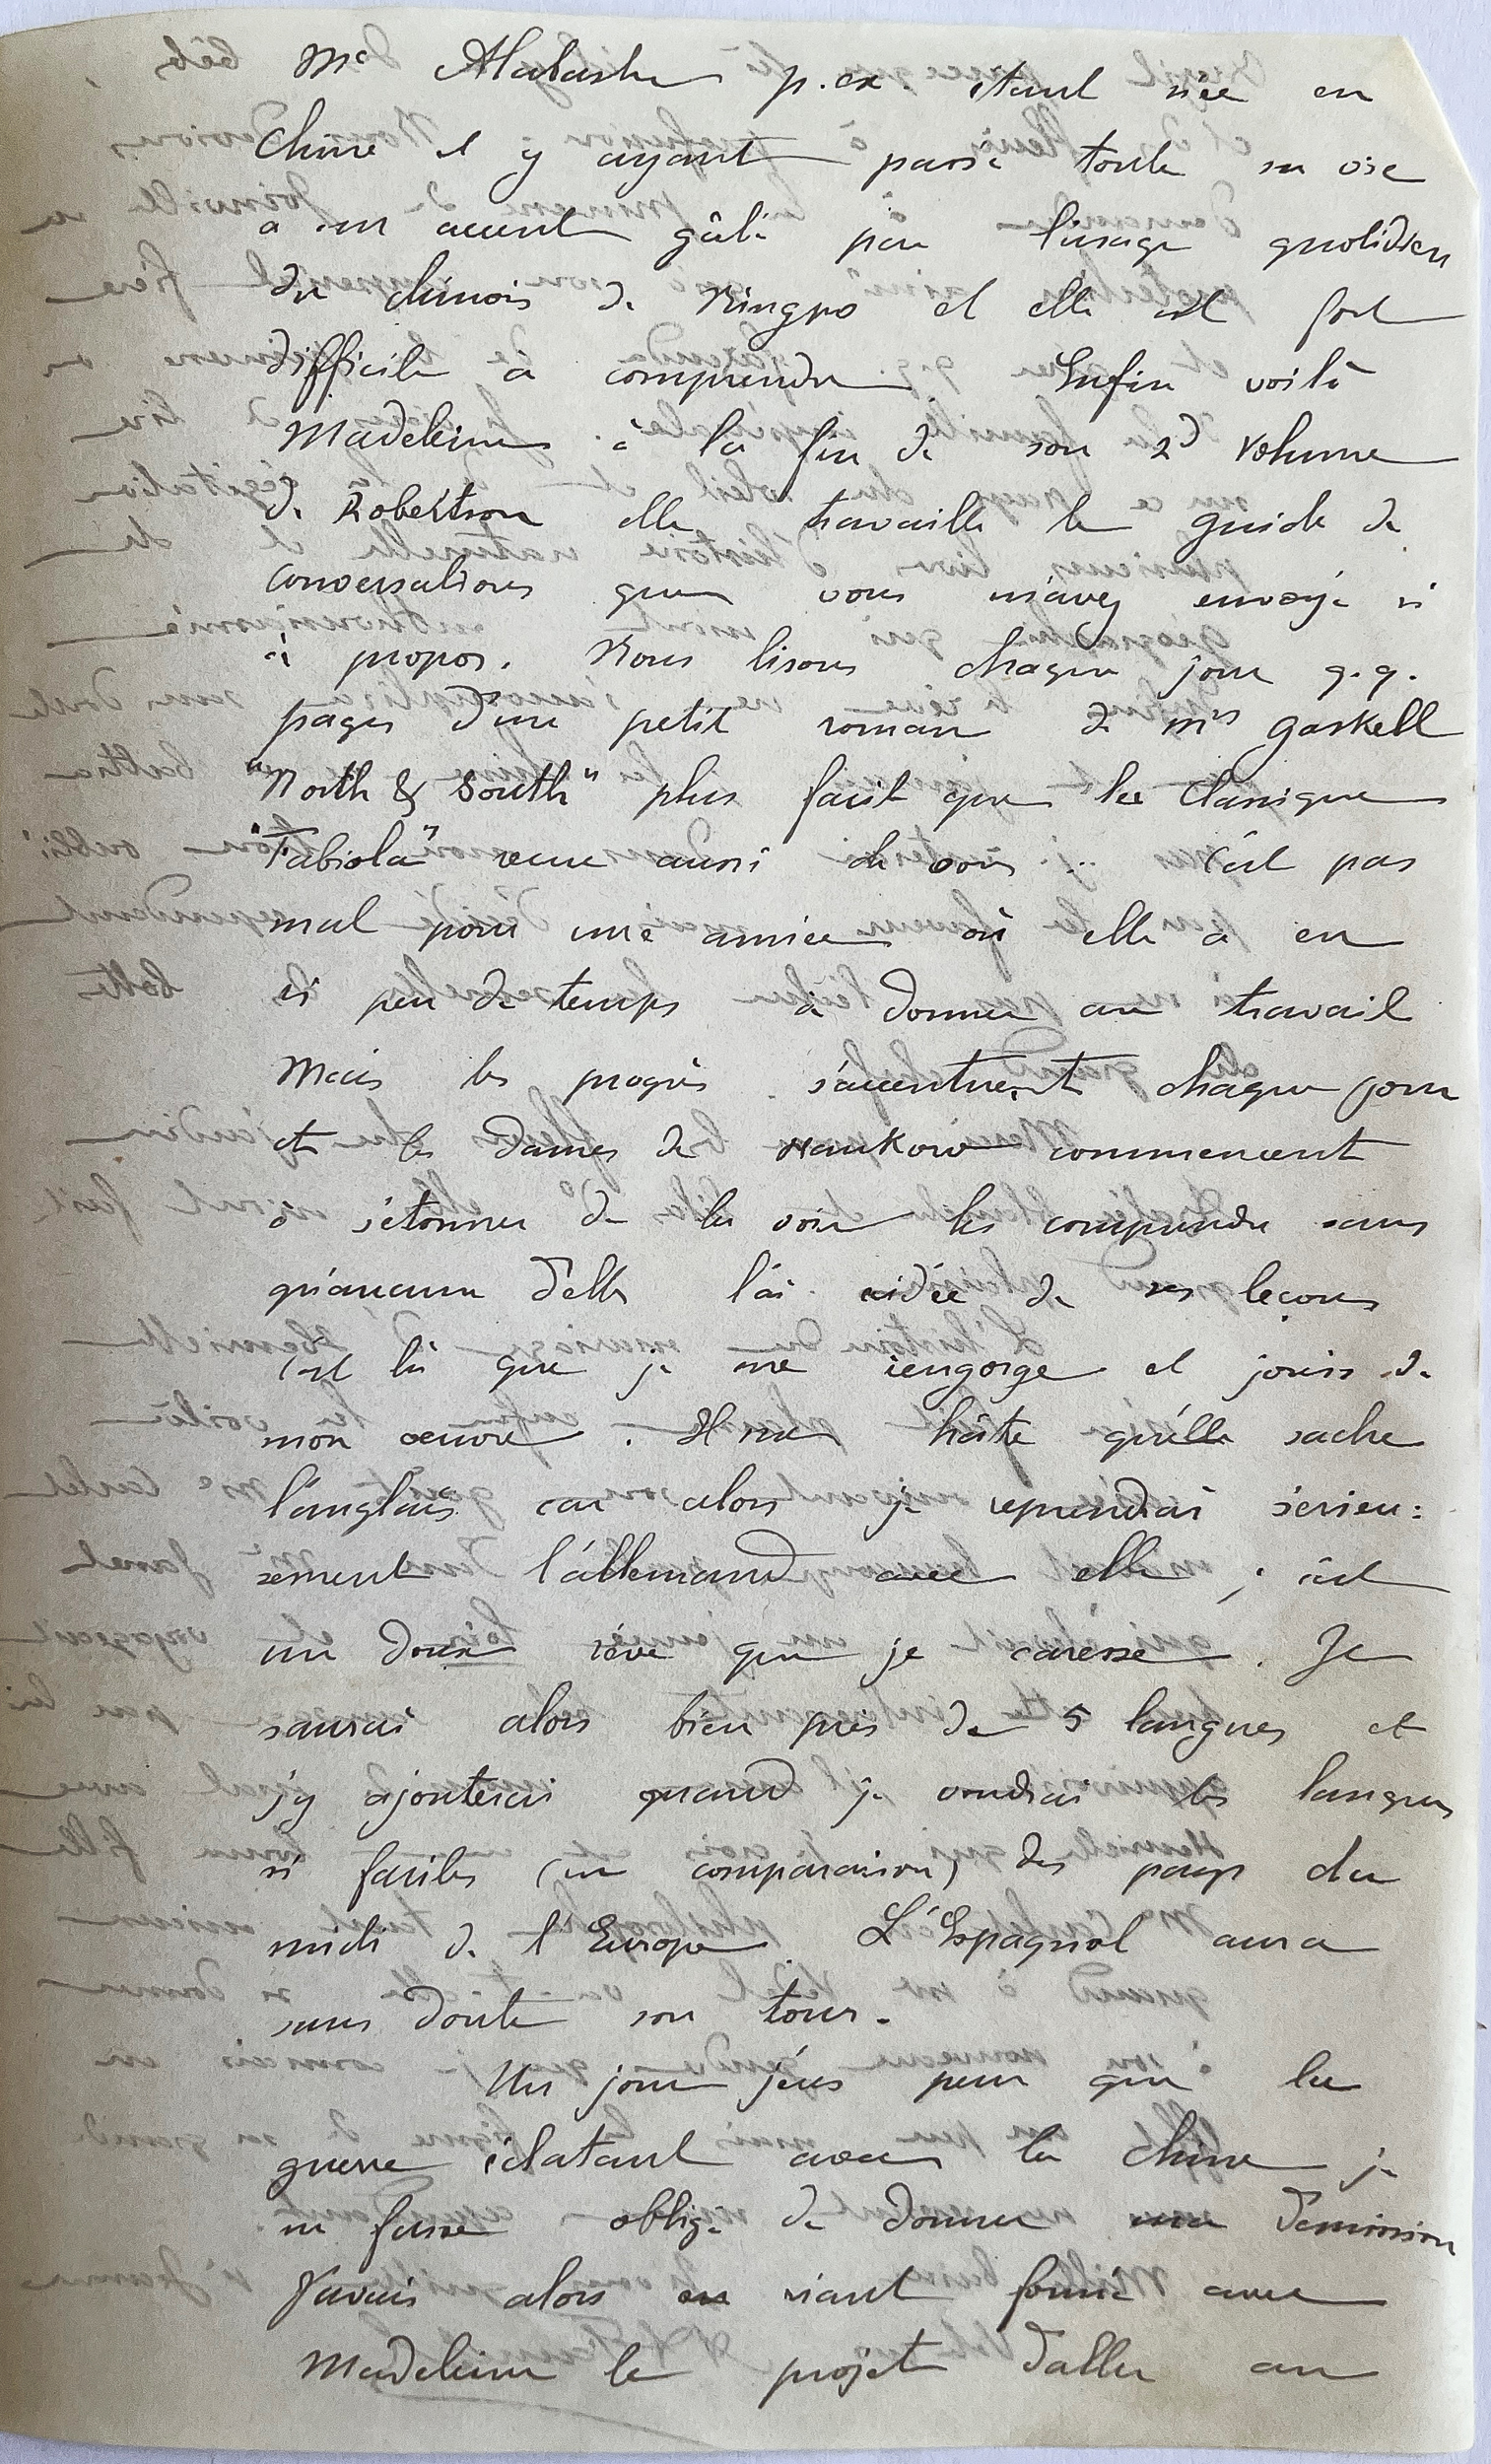 Me Alabaster p. ex. étant née en
Chine et y ayant passé toute sa vie
a un accent gâté par l'usage quotidien
du chinois de Ningpo et elle est fort
difficile à comprendre. Enfin voilà
Madeleine à la fin de son 2d volume
de Robertson elle travaille le guide de
conversations que vous m'avez envoyé si
à propos. Nous lisons chaque jour q.q.
pages d'un petit roman de Mrs Gaskell
"North & South" plus facile que le classique
"Fabiola" venu aussi de vous... C'est pas
mal pour une année où elle a eu
si peu de temps à donner au travail
Mais les progrès s'accentuent chaque jour
et les dames de Hankow commencent
à s'étonner de la voir les comprendre sans
qu'aucune d'elles l'ai aidée de ses leçons
C'est là que je me rengorge et jouis de
mon œuvre. Il me hâte qu'elle sache
l'anglais car alors je reprendrai sérieu=
sement l'allemand avec elle ; c'est
un doux rêve que je caresse. Je
saurai alors bien près de 5 langues et
j'y ajouterai quand je voudrai les langues
si faciles (en comparaison) des pays du
midi de l'Europe. L'Espagnol aura
sans doute son tour.
Un jour j'eus peur que la
guerre éclatant avec la Chine je
ne fusse obligé de donner ma démission
J'avais alors en riant formé avec
Madeleine le projet d'aller au